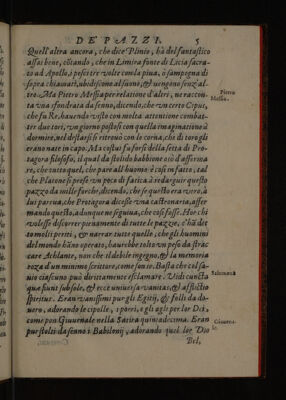 DE PAZZI. 5
Quell'altra ancora, che dice Plinio, hà del fantastico
assai bene, cōtando, che in Limira fonte di Licia sacra-
to ad Apollo, i pesci tre volte con la piua, ò sampogna di
sopra chiamati, vbidiscono al suono, & vengono senz'al-
tro. Ma Pietro Messia per relatione d'altri, ne raccon-
Pietro
Messia.
ta vna sfondrata da senno, dicendo, che vn certo Cipus,
che fu Re, hauendo visto con molta attentione combat-
tere duo tori, vn giorno postosi con quella imaginatione à
dormire, nel destarsi si ritrouò con le corna, che di toro gli
erano nate in capo. Ma costui fu forsi della setta di Pro-
tagora filosofo, il qual da stolido babbione osò d'afferma
re, che tutto quel, che pare all'huomo è così in fatto; tal
che Platone si prese vn poco di fatica à redarguir questo
pazzo da mille forche, dicendo, che se questo era vero, à
lui pareua, che Protagora dicesse vna castronaria, affer
mando questo, adunque ne seguiua, che così fosse. Hor chi
volesse discorrer pienamente di tutte le pazzie, c'hà det
to molti periti, & narrar tutte quelle, che gli huomini
del mondo hāno operato, haurebbe tolto vn peso da strac
care Athlante, non che il debile ingegno, & la memoria
roza d'un minimo scrittore, come son io. Basta che col sa-
uio ciascuno può dirittamente esclamare. Vidi cuncta
Salomone
quæ fiunt sub sole, & ecce vniuersa vanitas, & afflictio
spiritus. Eran vanissimi pur gli Egitij, & folli da do-
uero, adorando le cipolle, i porri, e gli agli per lor Dei,
come pon Giuuenale nella Satira quintadecima. Eran
Giuuena-
le.
pur stolti da senno i Babilonij, adorando quel lor Dio
Bel,